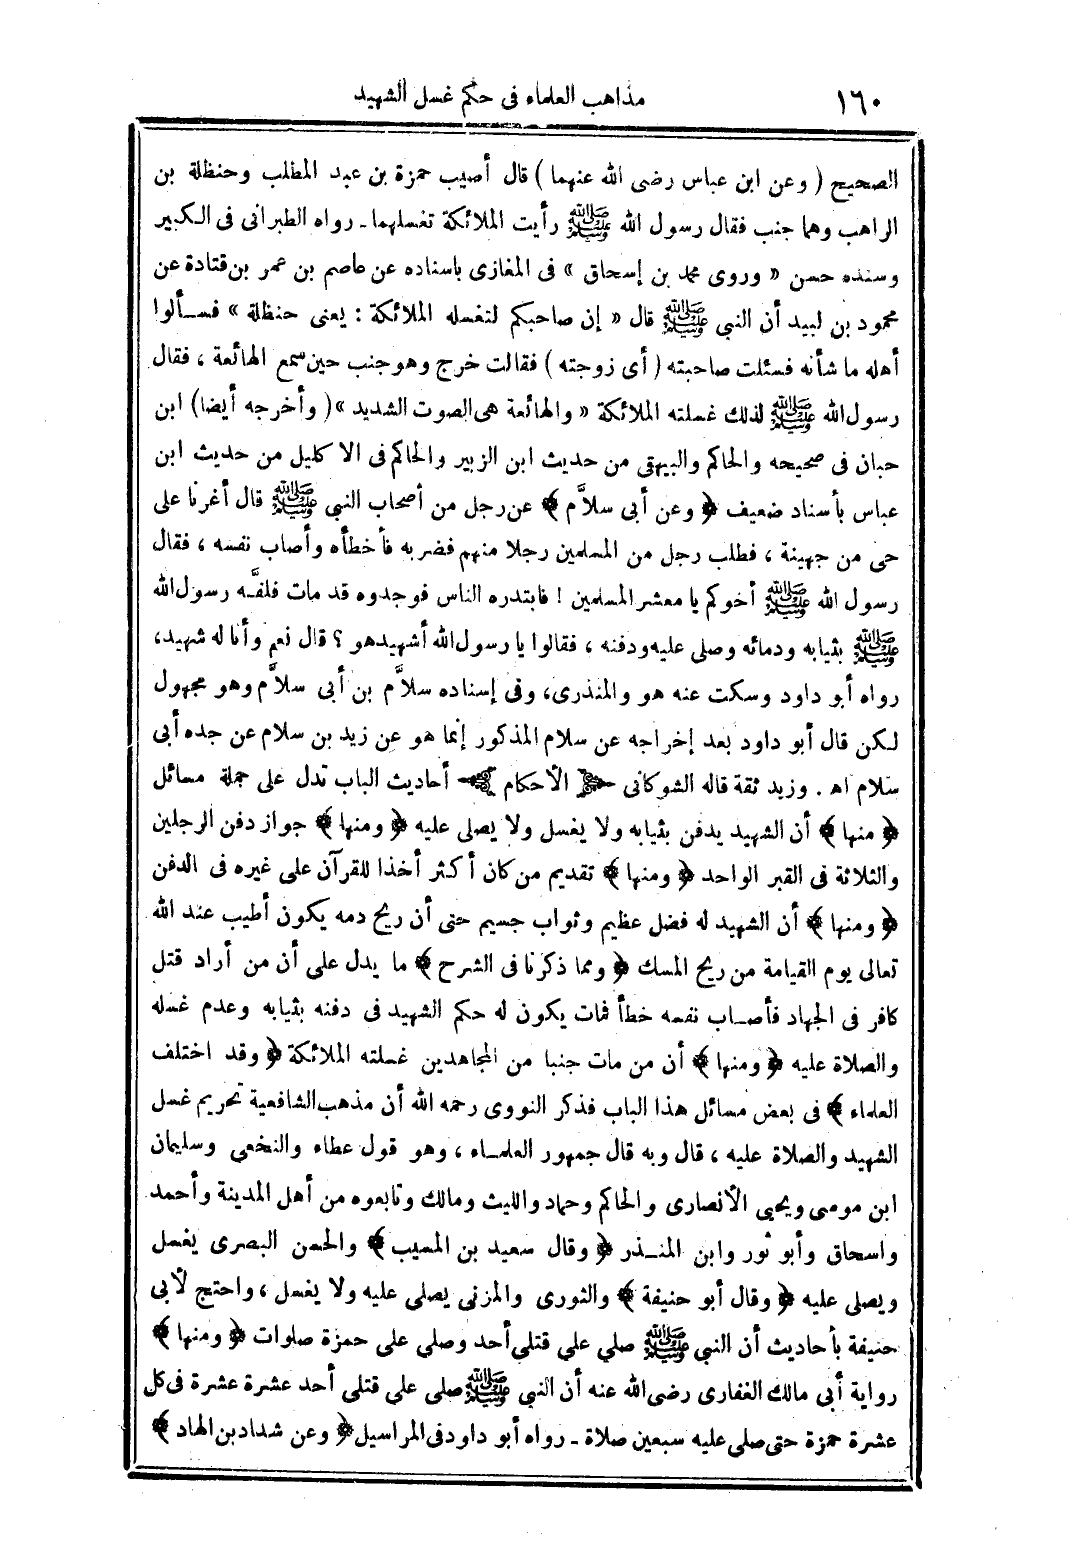 ١٦٠ مذاهب العلماء فى حكم غسل الشهيد
الصحيح ( وعن ابن عباس رضى الله عنهما ) قال أصيب حمزة بن عبد المطلب وحنظلة بن
الراهب وهما جنب فقال رسول الله ﷺ رأيت الملائكة تغسلهما ـ رواه الطبرانى فى الكبير
وسنده حسن « وروى محمد بن إسحاق » فى المغازى بأسناده عن عاصم بن عمر بن قتادة عن
محمود بن لبيد أن النبي ﷺ قال « إن صاحبكم لتغسله الملائكة : يعنى حنظلة » فسألوا
أهله ما شأنه فسئلت صاحبته ( أى زوجته ) فقالت خرج وهو جنب حين سمع الهائعة ، فقال
رسول الله ﷺ لذلك غسلته الملائكة « والهائعة هى الصوت الشديد » ( وأخرجه أيضا) ابن
حبان فى صحيحه والحاكم والبيهقى من حديث ابن الزبير والحاكم فى الاكليل من حديث ابن
عباس بأسناد ضعيف ﴿ وعن أبى سلاَّم ﴾ عن رجل من أصحاب النبي ﷺ قال أغرنا على
حى من جهينة ، فطلب رجل من المسلمين رجلا منهم فضربه فأخطأه وأصاب نفسه ، فقال
رسول الله ﷺ أخوكم يا معشر المسلمين ! فابتدره الناس فوجدوه قد مات فلفَّه رسول الله
ﷺ بثيابه ودمائه وصلى عليه ودفنه ، فقالوا يا رسول الله أشهيد هو ؟ قال نعم وأنا له شهيد،
رواه أبو داود وسكت عنه هو والمنذرى، وفى إسناده سلاَّم بن أبى سلاَّم وهو مجهول
لكن قال أبو داود بعد إخراجه عن سلام المذكور إنما هو عن زيد بن سلام عن جده أبى
سلام اهـ . وزيد ثقة قاله الشوكانى ﴿ الأحكام ﴾ أحاديث الباب تدل على جملة مسائل
﴿ منها ﴾ أن الشهيد يدفن بثيابه ولا يغسل ولا يصلى عليه ﴿ ومنها ﴾ جواز دفن الرجلين
والثلاثة فى القبر الواحد ﴿ ومنها ﴾ تقديم من كان أكثر أخذا للقرآن على غيره فى الدفن
﴿ ومنها ﴾ أن الشهيد له فضل عظيم وثواب جسيم حتى أن ريح دمه يكون أطيب عند الله
تعالى يوم القيامة من ريح المسك ﴿ ومما ذكرنا فى الشرح ﴾ ما يدل على أن من أراد قتل
كافر فى الجهاد فأصاب نفسه خطأ فمات يكون له حكم الشهيد فى دفنه بثيابه وعدم غسله
والصلاة عليه ﴿ ومنها ﴾ أن من مات جنبا من المجاهدين غسلته الملائكة ﴿ وقد اختلف
العلماء ﴾ فى بعض مسائل هذا الباب فذكر النووى رحمه الله أن مذهب الشافعية تحريم غسل
الشهيد والصلاة عليه ، قال وبه قال جمهور العلماء ، وهو قول عطاء والنخعي وسليمان
ابن موسى ويحيى الأنصارى والحاكم وحماد والليث ومالك وتابعوه من أهل المدينة وأحمد
واسحاق وأبو ثور وابن المنذر ﴿ وقال سعيد بن المسيب ﴾ والحسن البصرى يغسل
ويصلى عليه ﴿ وقال أبو حنيفة ﴾ والثورى والمزنى يصلى عليه ولا يغسل ، واحتج لأبى
حنيفة بأحاديث أن النبي ﷺ صلي علي قتلى أحد وصلي على حمزة صلوات ﴿ ومنها ﴾
رواية أبى مالك الغفارى رضى الله عنه أن النبي ﷺ صلى علي قتلى أحد عشرة عشرة فى كل
عشرة حمزة حتى صلى عليه سبعين صلاة ـ رواه أبو داود فى المراسيل ﴿ وعن شداد بن الهاد ﴾